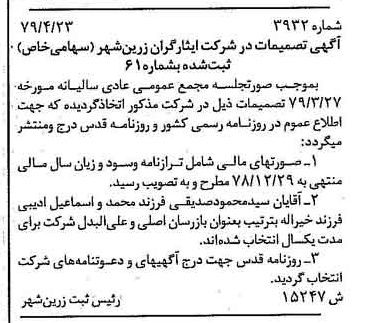 شماره ۳۹۳۲ ۷۹/۴/۲۳
آگهی تصمیمات در شرکت ایثارگران زرین‌شهر (سهامی‌خاص)
ثبت‌شده بشماره ۶۱
بموجب صورتجلسه مجمع عمومی عادی سالیانه مورخه
۷۹/۳/۲۷ تصمیمات ذیل در شرکت مذکور اتخاذگردیده که جهت
اطلاع عموم در روزنامه رسمی کشور و روزنامه قدس درج ومنتشر
میگردد:
۱ـ صورتهای مالی شامل ترازنامه وسود و زیان سال مالی
منتهی به ۷۸/۱۲/۲۹ مطرح و به تصویب رسید.
۲ـ آقایان سیدمحمودصدیقی فرزند محمد و اسماعیل ادیبی
فرزند خیراله بترتیب بعنوان بازرسان اصلی و علی‌البدل شرکت برای
مدت یکسال انتخاب شده‌اند.
۳ـ روزنامه قدس جهت درج آگهیهای و دعوتنامه‌های شرکت
انتخاب گردید.
ش ۱۵۲۴۷ رئیس ثبت زرین‌شهر